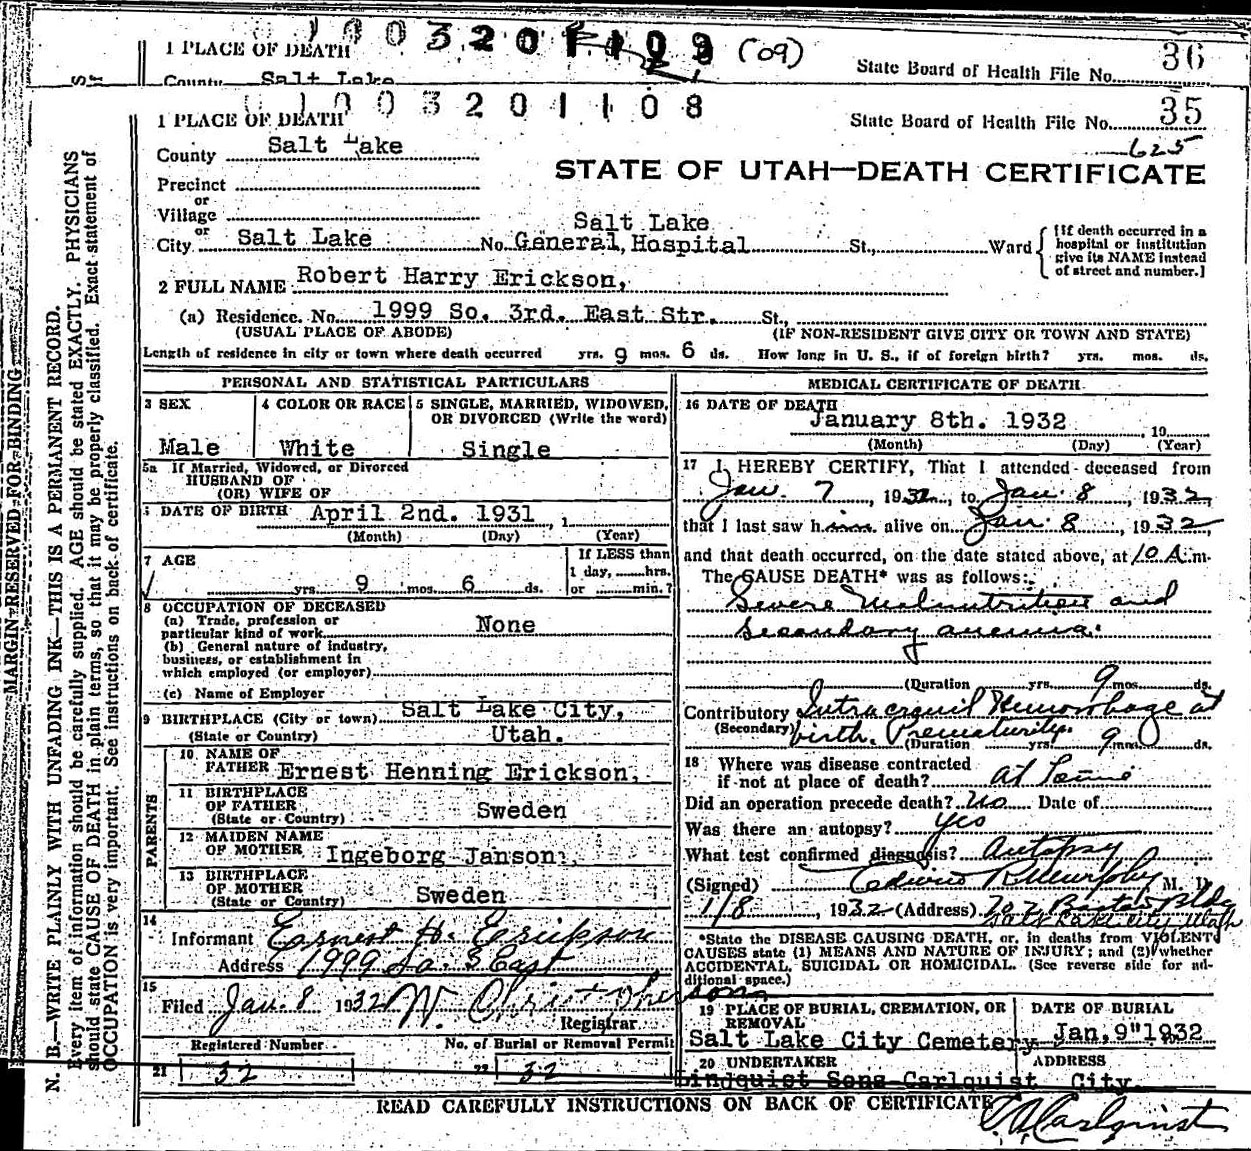 1 PLACE OF DEATH 1 0 0 3 2 0 1 1 0 9 (09) State Board of Health File No. 36
County Salt Lake
0 1 0 0 3 2 0 1 1 0 8
1 PLACE OF DEATH State Board of Health File No. 35
County Salt Lake 625
STATE OF UTAH—DEATH CERTIFICATE
Precinct
or
Village
or
City Salt Lake No. Salt Lake General Hospital St., Ward
[If death occurred in a
hospital or institution
give its NAME instead
of street and number.]
2 FULL NAME Robert Harry Erickson,
(a) Residence. No. 1999 So. 3rd. East Str. St.,
(USUAL PLACE OF ABODE) (IF NON-RESIDENT GIVE CITY OR TOWN AND STATE)
Length of residence in city or town where death occurred yrs. 9 mos. 6 ds. How long in U. S., if of foreign birth? yrs. mos. ds.
PERSONAL AND STATISTICAL PARTICULARS
3 SEX
Male
4 COLOR OR RACE
White
5 SINGLE, MARRIED, WIDOWED,
OR DIVORCED (Write the word)
Single
5a If Married, Widowed, or Divorced
HUSBAND OF
(OR) WIFE OF
DATE OF BIRTH April 2nd. 1931, 1
(Month) (Day) (Year)
7 AGE
yrs. 9 mos. 6 ds.
If LESS than
1 day, hrs.
or min.?
8 OCCUPATION OF DECEASED
(a) Trade, profession or
particular kind of work None
(b) General nature of industry,
business, or establishment in
which employed (or employer)
(c) Name of Employer
9 BIRTHPLACE (City or town) Salt Lake City,
(State or Country) Utah.
PARENTS
10 NAME OF
FATHER Ernest Henning Erickson,
11 BIRTHPLACE
OF FATHER
(State or Country) Sweden
12 MAIDEN NAME
OF MOTHER Ingeborg Janson,
13 BIRTHPLACE
OF MOTHER
(State or Country) Sweden
14
Informant Ernest H. Erickson
Address 1999 So. 3 East
15
Filed Jan. 8 1932 W. Christopherson
Registrar
Registered Number No. of Burial or Removal Permit
21 32 22 32
MEDICAL CERTIFICATE OF DEATH
16 DATE OF DEATH
January 8th. 1932, 19
(Month) (Day) (Year)
17 I HEREBY CERTIFY, That I attended deceased from
Jan. 7, 1932, to Jan. 8, 1932,
that I last saw him alive on Jan. 8, 1932
and that death occurred, on the date stated above, at 10 A.m.
The CAUSE DEATH* was as follows:
Severe Malnutrition and
secondary anemia.
(Duration yrs. 9 mos. ds.
Contributory Intracranial Hemorrhage at
(Secondary) birth. Prematurity.
(Duration yrs. 9 mos. ds.
18 Where was disease contracted
if not at place of death? at home
Did an operation precede death? No Date of
Was there an autopsy? yes
What test confirmed diagnosis? Autopsy
(Signed) Edwin R Murphy M. D.
1/8, 1932 (Address) Bldg
Salt Lake City Utah
*State the DISEASE CAUSING DEATH, or, in deaths from VIOLENT
CAUSES state (1) MEANS AND NATURE OF INJURY; and (2) whether
ACCIDENTAL, SUICIDAL OR HOMICIDAL. (See reverse side for ad-
ditional space.)
19 PLACE OF BURIAL, CREMATION, OR
REMOVAL
Salt Lake City Cemetery
DATE OF BURIAL
Jan, 9" 1932
20 UNDERTAKER
Lindquist Sons-Carlquist
ADDRESS
City.
READ CAREFULLY INSTRUCTIONS ON BACK OF CERTIFICATE
Carlquist
MARGIN RESERVED FOR BINDING
N. B.—WRITE PLAINLY WITH UNFADING INK—THIS IS A PERMANENT RECORD.
Every item of information should be carefully supplied. AGE should be stated EXACTLY. PHYSICIANS
should state CAUSE OF DEATH in plain terms, so that it may be properly classified. Exact statement of
OCCUPATION is very important. See instructions on back of certificate.